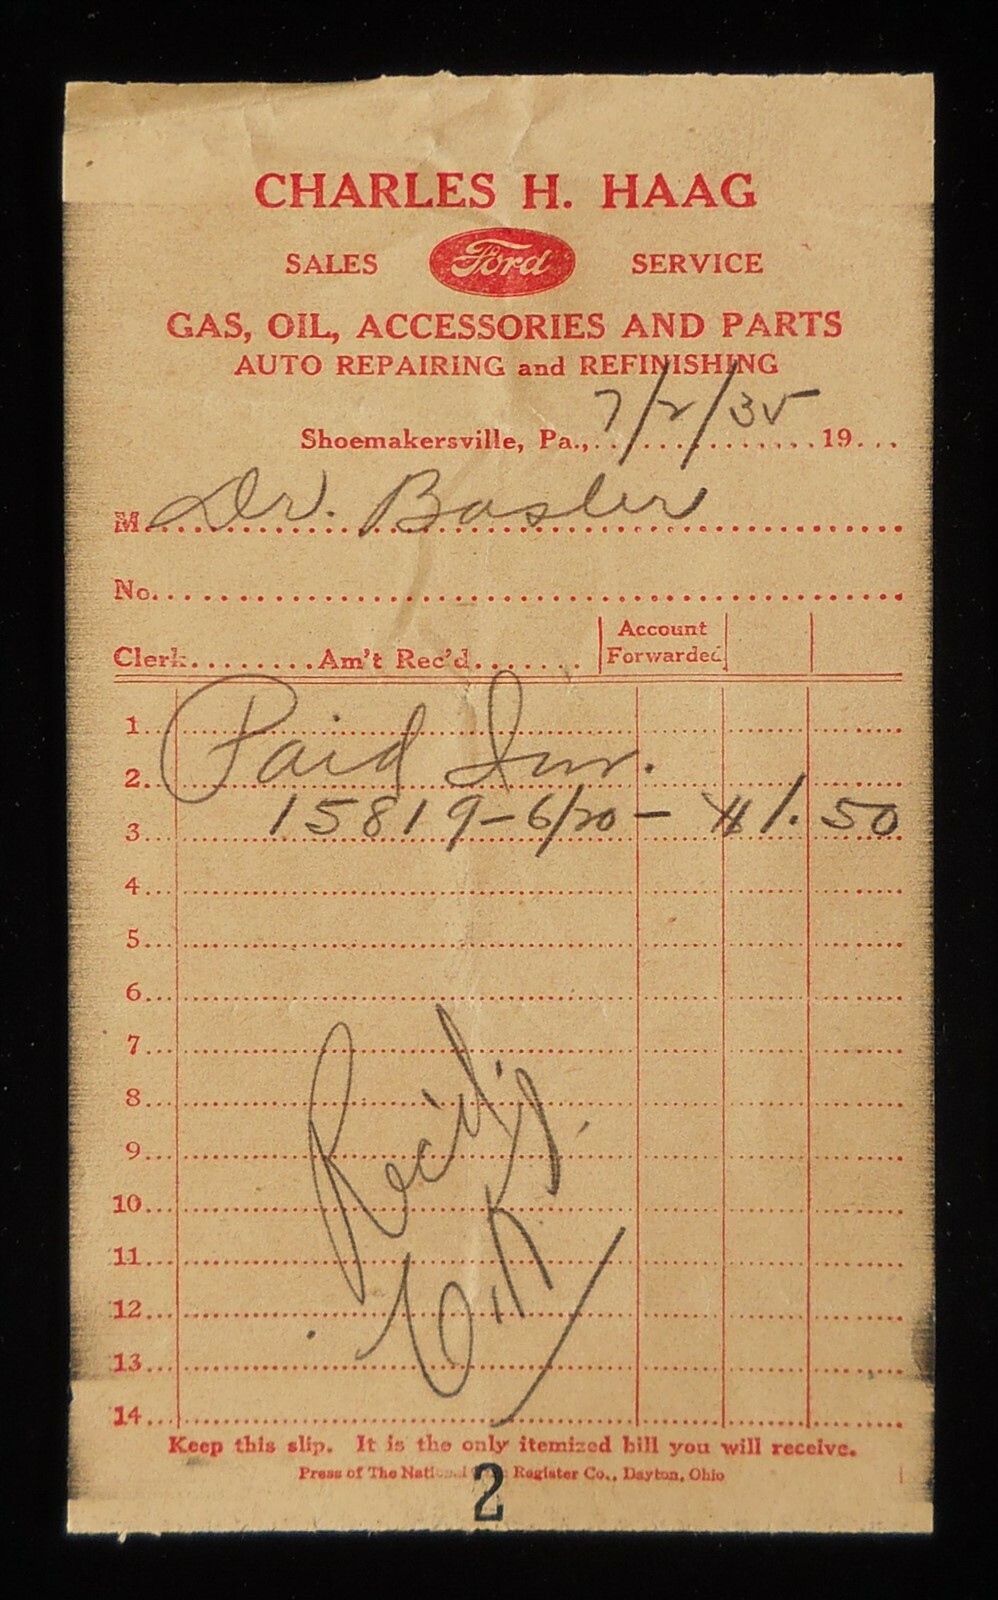 CHARLES H. HAAG
SALES Ford SERVICE
GAS, OIL, ACCESSORIES AND PARTS
AUTO REPAIRING and REFINISHING
Shoemakersville, Pa., 7/2/35 19...
M. Dr. Basler
No.
Clerk Am't Rec'd Account Forwarded
1 Paid Inv.
2
3 15819-6/20- $1.50
4
5
6
7
8
9
10
11
12
13
14
Rec'd
Keep this slip. It is the only itemized bill you will receive.
Press of The National Register Co., Dayton, Ohio
2